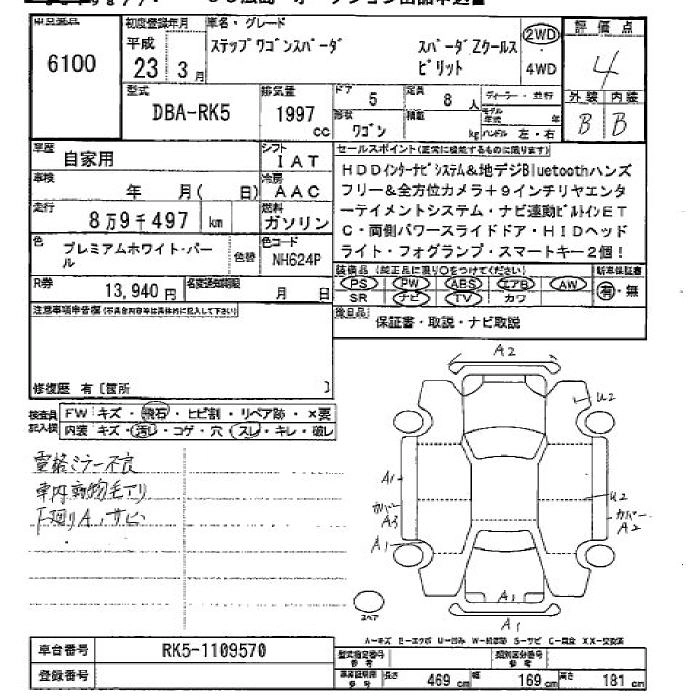 6100
初度登録年月
平成
23 3月
車名・グレード
ステップワゴンスパーダ スパーダZクールス
ピリット
2WD
4WD
評価点
4
外装 内装
B B
型式
DBA-RK5
排気量
1997
cc
ドア
5
定員
8 人
ディーラー・並行
形状
ワゴン
積載
kg
モデル年式 年
ハンドル 左・右
車歴
自家用
シフト
IAT
車検
年 月( 日)
冷房
AAC
走行
8万9千497 km
燃料
ガソリン
色
プレミアムホワイト・パー
ル
色替
色コード
NH624P
R券
13,940 円
名変通知期限
月 日
セールスポイント(正常に機能するものに限ります)
HDDインターナビシステム&地デジBluetoothハンズ
フリー&全方位カメラ+9インチリヤエンタ
ーテイメントシステム・ナビ連動ビルトインET
C・両側パワースライドドア・HIDヘッド
ライト・フォグランプ・スマートキー2個!
装備品(純正品に限り○をつけてください)
新車保証書
PS PW ABS エアB AW
有・無
SR ナビ TV カワ
後日品
保証書・取説・ナビ取説
注意事項申告欄(不具合内容等は具体的に記入して下さい)
修復歴 有[箇所 ]
検査員
記入欄
FW キズ・飛石・ヒビ割・リペア跡・×要
内装 キズ・汚れ・コゲ・穴・スレ・キレ・破レ
電格ミラー不良
車内動物毛アリ
下廻りA、サビ
A2
U2
A1
カバー
A3
A1
U2
カバー
A2
A1
A1
スペア
A-キズ E-エクボ U-凹み W-補修跡 S-サビ C-腐食 XX-交換済
車台番号
RK5-1109570
登録番号
型式指定番号
参考
類別区分番号
参考
長さ 469 cm 幅 169 cm 高さ 181 cm